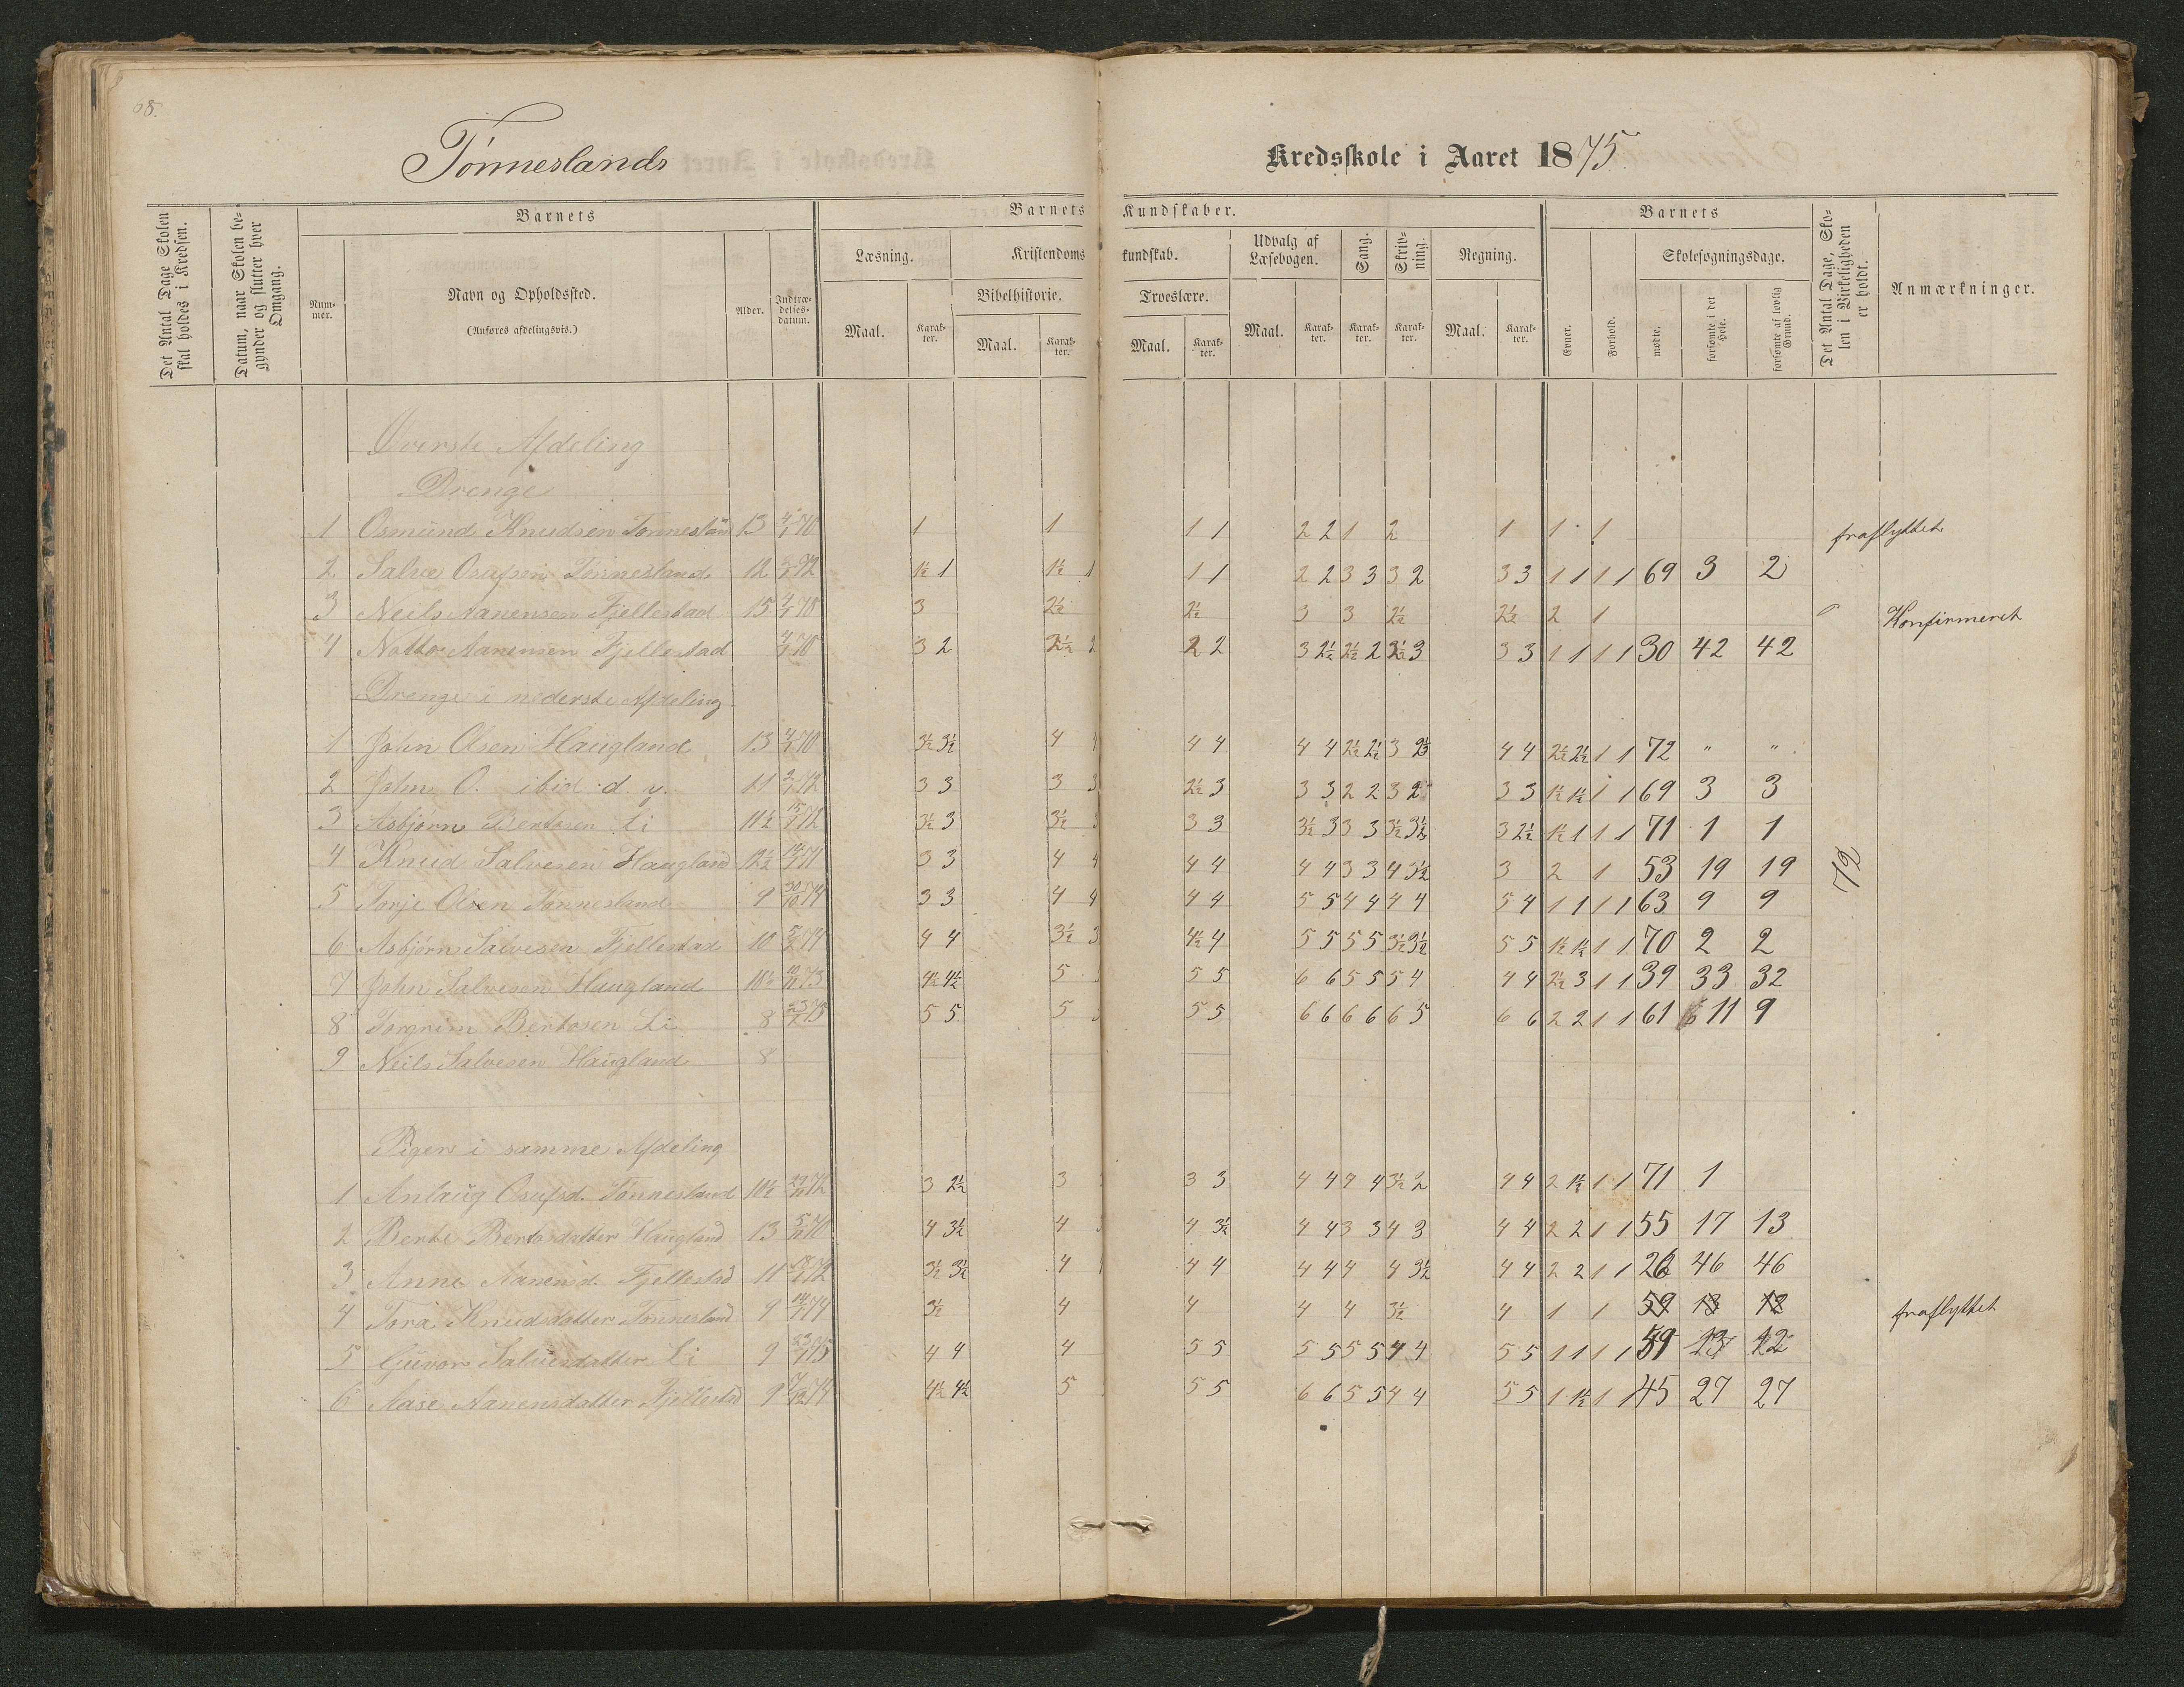 68.
Tönneslands Kredsskole i Aaret 1875.
Det Antal Dage Skolen skal holdes i Kredsen.
Datum, naar Skolen begynder og slutter hver Omgang.
Barnets
Barnets Kundskaber.
Barnets
Det Antal Dage, Skolen i Virkeligheden er holdt.
Anmærkninger.
Nummer.
Navn og Opholdssted.
(Anføres afdelingsvis.)
Alder.
Indtrædelsesdatum.
Læsning.
Kristendomskundskab.
Udvalg af Læsebogen.
Sang.
Skrivning.
Regning.
Evner.
Forhold.
Skolesøgningsdage.
Bibelhistorie.
Troeslære.
Maal. Karakter. Maal. Karakter. Maal. Karakter. Maal. Karakter. Karakter. Karakter. Maal. Karakter.
mødte.
forsømte i det Hele.
forsømte af lovlig Grund.
Øverste Afdeling
Drenge
1 Osmund Knudsen Tönnesland 13 4/1 70 1 1 1 1 2 2 1 2 1 1 1 fraflyttet
2 Salve Osufsen Tönnesland 12 72 1½ 1 1½ 1 1 1 2 2 3 3 3 2 3 3 1 1 1 1 69 3 2
3 Neils Aanensen Fjellestad 15 4/1 70 3 2½ 2½ 3 3 2½ 2½ 2 1 Konfirmeret
4 Notto Aanensen Fjellestad 4/1 70 3 2 3½ 2 2 2 3 2½ 2½ 2 3½ 3 3 3 1 1 1 1 30 42 42
Drenge i nederste Afdeling
1 John Olsen Haugland 13 4/1 70 3½ 3½ 4 4 4 4 4 4 2½ 2½ 3 2½ 4 4 2½ 2½ 1 1 72 " "
2 John O. ibid d. y. 11 72 3 3 3 3 2½ 3 3 3 2 2 3 2 3 3 1½ 1½ 1 1 69 3 3
3 Asbjörn Bertosen Li 11½ 72 3½ 3 3½ 3 3 3 3½ 3 3 3 3½ 3½ 3 2½ 1½ 1 1 1 71 1 1
4 Knud Salvesen Haugland 12½ 71 3 3 4 4 4 4 4 4 3 3 4 3½ 3 2 1 53 19 19 72
5 Torje Olsen Tönnesland 9 30/10 74 3 3 4 4 4 4 5 5 4 4 4 4 5 4 1 1 1 1 63 9 9
6 Asbjörn Salvesen Fjellestad 10 5/2 74 4 4 3½ 3 4½ 4 5 5 5 5 3½ 3½ 5 5 1½ 1½ 1 1 70 2 2
7 John Salvesen Haugland 10½ 73 4½ 4½ 5 5 5 6 6 5 5 5 4 4 4 2½ 3 1 1 39 33 32
8 Torgrim Bertosen Li 8 75 5 5 5 5 5 6 6 6 6 6 5 6 6 2 2 1 1 61 11 9
9 Neils Salvesen Haugland 8
Piger i samme Afdeling
1 Anlaug Osufsd. Tönnesland 10½ 72 3 2½ 3 3 3 4 4 4 4 3½ 2 4 4 2 1½ 1 1 71 1
2 Berte Bertosdatter Haugland 13 70 4 3½ 4 4 3½ 4 4 3 3 4 3 4 4 2 2 1 1 55 17 13
3 Anne Aanensd. Fjellestad 11 72 3½ 3½ 4 4 4 4 4 4 4 3½ 4 4 2 2 1 1 26 46 46
4 Tora Knudsdatter Tönnesland 9 74 3½ 4 4 4 4 3½ 4 1 1 59 13 12 fraflyttet
5 Gunvor Salvesdatter Li 9 75 4 4 4 5 5 5 5 5 5 4 4 5 5 1 1 1 1 59 13 12
6 Aase Aanensdatter Fjellestad 9 74 4½ 4½ 5 5 5 6 6 5 5 4 4 5 5 1 1½ 1 1 45 27 27